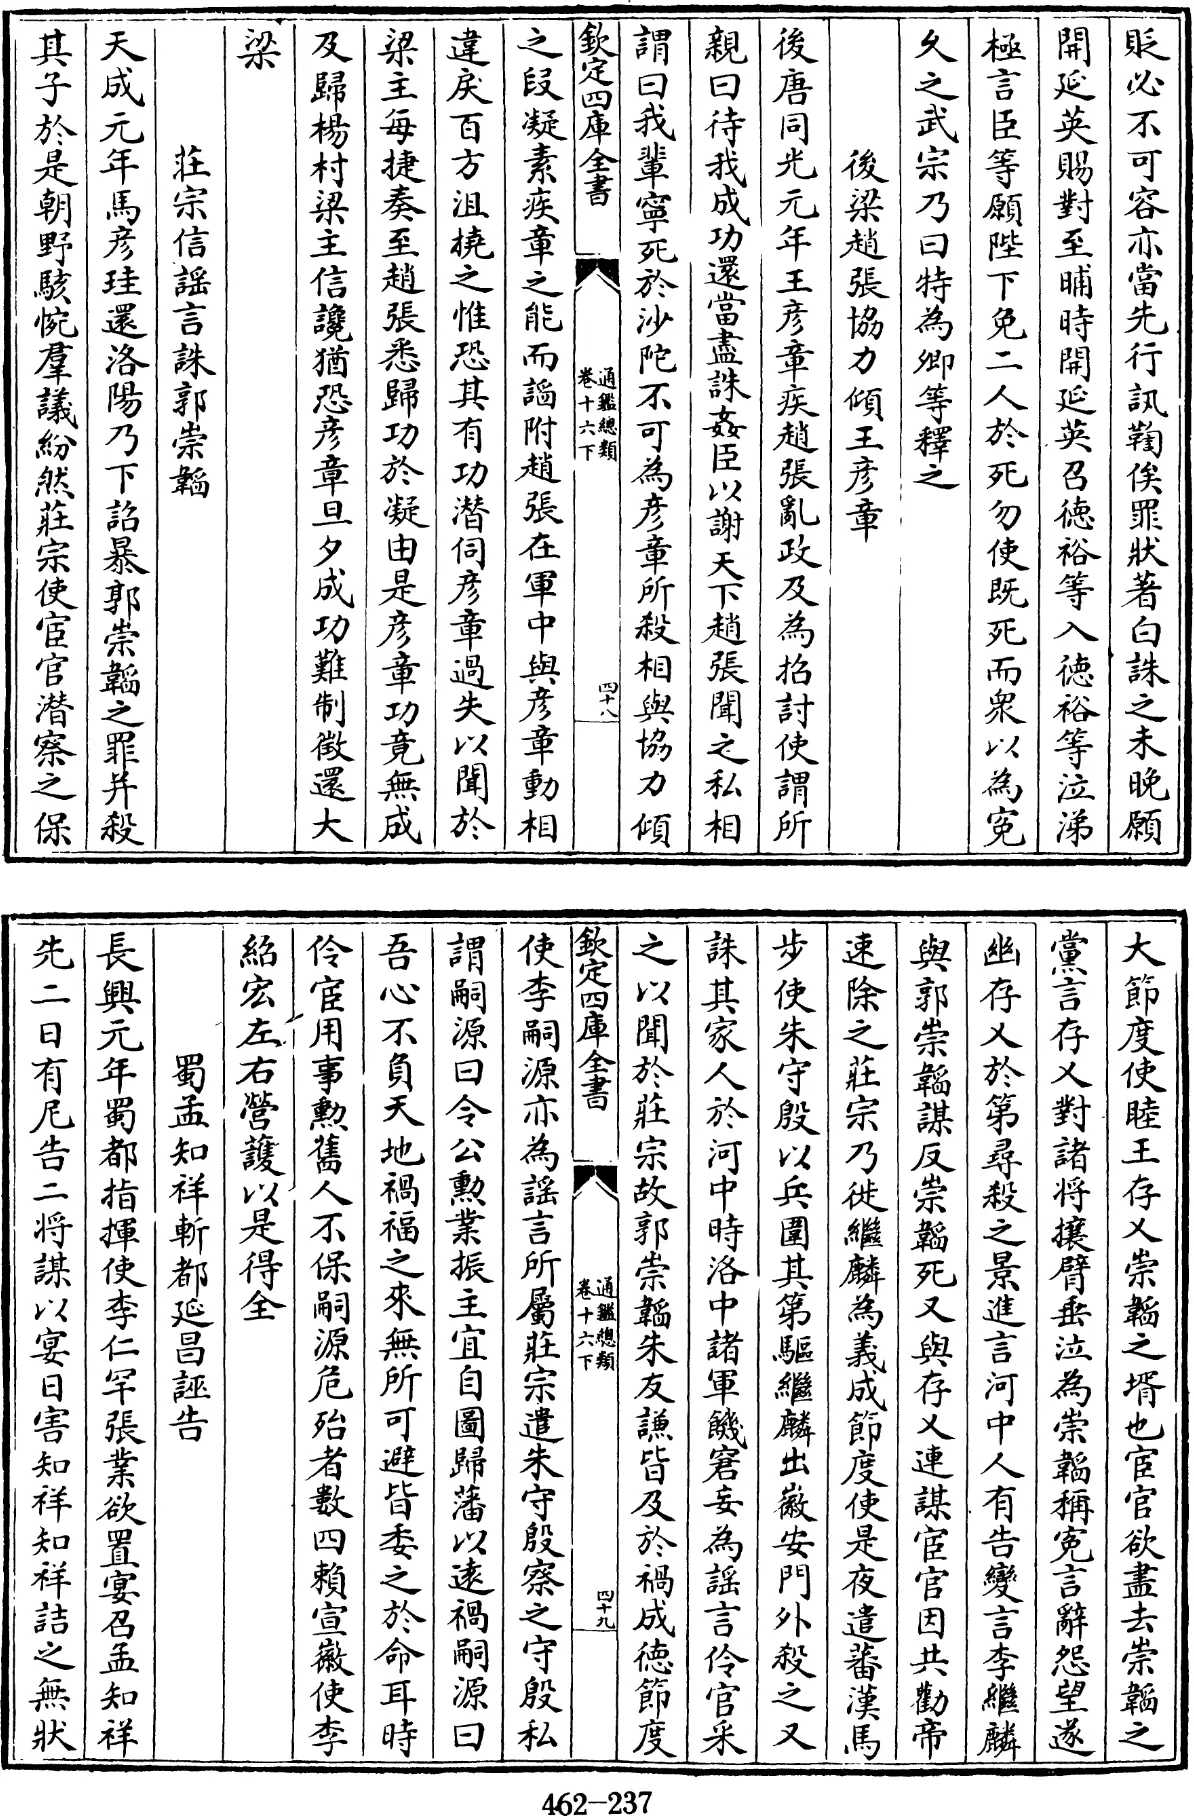 貶必不可容亦當先行訊鞫俟罪狀著白誅之未晚願
開延英賜對至晡時開延英召德裕等入德裕等泣涕
極言臣等願陛下免二人於死勿使既死而衆以為寃
久之武宗乃曰特為卿等釋之
後梁趙張協力傾王彥章
後唐同光元年王彥章疾趙張亂政及為招討使謂所
親曰待我成功還當盡誅姦臣以謝天下趙張聞之私相
謂曰我輩寧死於沙陀不可為彥章所殺相與協力傾
欽定四庫全書
通鑑總類
卷十六下
四十八
之段凝素疾章之能而謟附趙張在軍中與彥章動相
違戾百方沮撓之惟恐其有功潜伺彥章過失以聞於
梁主每捷奏至趙張悉歸功於凝由是彥章功竟無成
及歸楊村梁主信讒猶恐彥章旦夕成功難制徵還大
梁
莊宗信謡言誅郭崇韜
天成元年馬彥珪還洛陽乃下詔暴郭崇韜之罪并殺
其子於是朝野駭惋羣議紛然莊宗使宦官潜察之保
大節度使睦王存乂崇韜之壻也宦官欲盡去崇韜之
黨言存乂對諸將攘臂垂泣為崇韜稱寃言辭怨望遂
幽存乂於第尋殺之景進言河中人有告變言李繼麟
與郭崇韜謀反崇韜死又與存乂連謀宦官因共勸帝
速除之莊宗乃徙繼麟為義成節度使是夜遣蕃漢馬
步使朱守殷以兵圍其第驅繼麟出徽安門外殺之又
誅其家人於河中時洛中諸軍饑窘妄為謡言伶官采
之以聞於莊宗故郭崇韜朱友謙皆及於禍成德節度
欽定四庫全書
通鑑總類
卷十六下
四十九
使李嗣源亦為謡言所屬莊宗遣朱守殷察之守殷私
謂嗣源曰令公勳業振主宜自圖歸藩以遠禍嗣源曰
吾心不負天地禍福之來無所可避皆委之於命耳時
伶宦用事勲舊人不保嗣源危殆者數四賴宣徽使李
紹宏左右營護以是得全
蜀孟知祥斬都延昌誣告
長興元年蜀都指揮使李仁罕張業欲置宴召孟知祥
先二日有尼告二將謀以宴日害知祥知祥詰之無狀
462-237